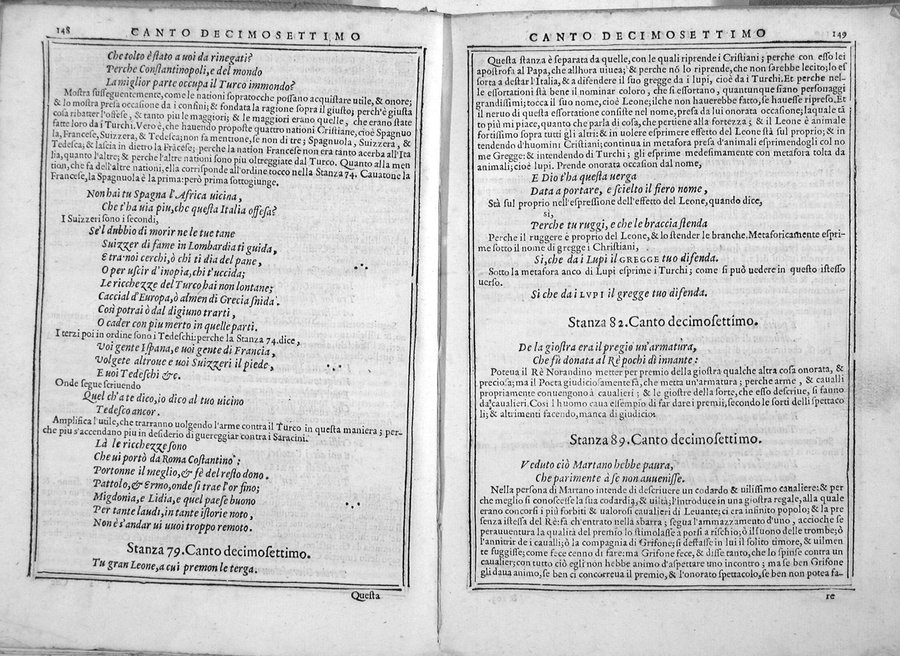 148
CANTO DECIMOSETTIMO
Che tolto è stato a uoi da rinegati?
Perche Constantinopoli, e del mondo
La miglior parte occupa il Turco immondo?
Mostra susseguentemente, come le nationi sopratocche possano acquistare utile, & onore;
& lo mostra presa occasione da i confini; & fondata la ragione sopra il giusto; perch'è giusta
cosa ributtar l'offese, & tanto piu le maggiori; & le maggiori erano quelle, che erano state
fatte loro da i Turchi. Vero è, che hauendo proposte quattro nationi Cristiane, cioè Spagnuo
la, Francese, Suizzera, & Tedesca; non fa mentione, se non di tre; Spagnuola, Suizzera, &
Tedesca, & lascia in dietro la Frãcese; perche la nation Francese non era tanto acerba all'Ita
lia, quanto l'altre; & perche l'altre nationi sono piu oltreggiate dal Turco. Quanto alla men
tion, che fa dell'altre nationi, ella corrisponde all'ordine tocco nella Stanza 74. Cauatone la
Francese, la Spagnuola è la prima: però prima sottogiunge.
Non hai tu Spagna l'Africa uicina,
Che t'ha uia piu, che questa Italia offesa?
I Suizzeri sono i secondi,
Se'l dubbio di morir ne le tue tane
Suizzer di fame in Lombardia ti guida,
E tra noi cerchi, ò chi ti dia del pane,
O per uscir d'inopia, chi t'uccida;
Le ricchezze del Turco hai non lontane;
Caccial d'Europa, ò almen di Grecia snida.
Così potrai ò dal digiuno trarti,
O cader con piu merto in quelle parti.
I terzi poi in ordine sono i Tedeschi: perche la Stanza 74. dice,
Voi gente Ispana, e uoi gente di Francia,
Volgete altroue e uoi Suizzeri il piede,
E uoi Tedeschi &c.
Onde segue scriuendo
Quel ch'a te dico, io dico al tuo uicino
Tedesco ancor.
Amplifica l'utile, che trarranno uolgendo l'arme contra il Turco in questa maniera; per-
che piu s'accendano piu in desiderio di guerreggiar contra i Saracini.
Là le ricchezze sono
Che ui portò da Roma Costantino:
Portonne il meglio, & fè del resto dono.
Pattolo, & Ermo, onde si trae l'or fino;
Migdonia, e Lidia, e quel paese buono
Per tante laudi, in tante istorie noto,
Non è s'andar ui uuoi troppo remoto.
Stanza 79. Canto decimosettimo.
Tu gran Leone, a cui premon le terga.
Questa
CANTO DECIMOSETTIMO
149
Questa stanza è separata da quelle, con le quali riprende i Cristiani; perche con esso lei
apostrofa al Papa, che allhora uiuea; & perche nõ lo riprende, che non sarebbe lecito; lo es
sorta a destar l'Italia, & a difendere il suo gregge da i lupi, cioè da i Turchi. Et perche nel-
le essortationi stà bene il nominar coloro, che si essortano, quantunque siano personaggi
grandissimi; tocca il suo nome, cioè Leone; ilche non hauerebbe fatto, se hauesse ripreso. Et
il neruo di questa essortatione consiste nel nome, presa da lui onorata occasione; laquale tã
to più mi piace, quanto che parla di cosa, che pertiene alla fortezza; & il Leone è animale
fortissimo sopra tutti gli altri: & in uolere esprimere effetto del Leone stà sul proprio; & in
tendendo d'huomini Cristiani; continua in metafora presa d'animali esprimendogli col no
me Gregge: & intendendo di Turchi; gli esprime medesimamente con metafora tolta da
animali; cioè lupi. Prende onorata occasion dal nome,
E Dio t'ha questa uerga
Data a portare, e scielto il fiero nome,
Stà sul proprio nell'espressione dell'effetto del Leone, quando dice,
sì,
Perche tu ruggi, e che le braccia stenda
Perche il ruggere è proprio del Leone, & lo stender le branche. Metaforicamente espri-
me sotto il nome di gregge i Christiani,
Sì, che da i Lupi il GREGGE tuo difenda.
Sotto la metafora anco di Lupi esprime i Turchi; come si può uedere in questo istesso
uerso.
Si che da i LVPI il gregge tuo difenda.
Stanza 82. Canto decimosettimo.
De la giostra era il pregio un'armatura,
Che fù donata al Rè pochi dì innante:
Poteua il Rè Norandino metter per premio della giostra qualche altra cosa onorata, &
preciosa; ma il Poeta giudiciosamente fà, che metta un'armatura; perche arme, & caualli
propriamente conuengono a caualieri; & le giostre della sorte, che esso descriue, si fanno
da caualieri. Così l huomo caua essempio di far dare i premii, secondo le sorti delli spettaco
li; & altrimenti facendo, manca di giudicio.
Stanza 89. Canto decimosettimo.
Veduto ciò Martano hebbe paura,
Che parimente a se non auuenisse.
Nella persona di Martano intende di descriuere un codardo & uilissimo caualiere: & per
che meglio si conoscesse la sua codardia, & uiltà; l'introduce in una giostra regale, alla quale
erano concorsi i più forbiti & ualorosi caualieri di Leuante; ci era infinito popolo; & la pre
senza istessa del Rè: fa ch'entrato nella sbarra; segua l'ammazzamento d'uno, accioche se
perauuentura la qualità del premio lo stimolasse a porsi a rischio; ò il suono delle trombe; ò
l'annitrir de i caualli; ò la compagnia di Grifone; si destasse in lui il solito timore, & uilmen
te fuggisse; come fece cenno di fare: ma Grifone fece, & disse tanto, che lo spinse contra un
caualier; con tutto ciò egli non hebbe animo d'aspettare uno incontro; ma se ben Grifone
gli daua animo, se ben ci concorreua il premio, & l'onorato spettacolo, se ben non potea fa-
re